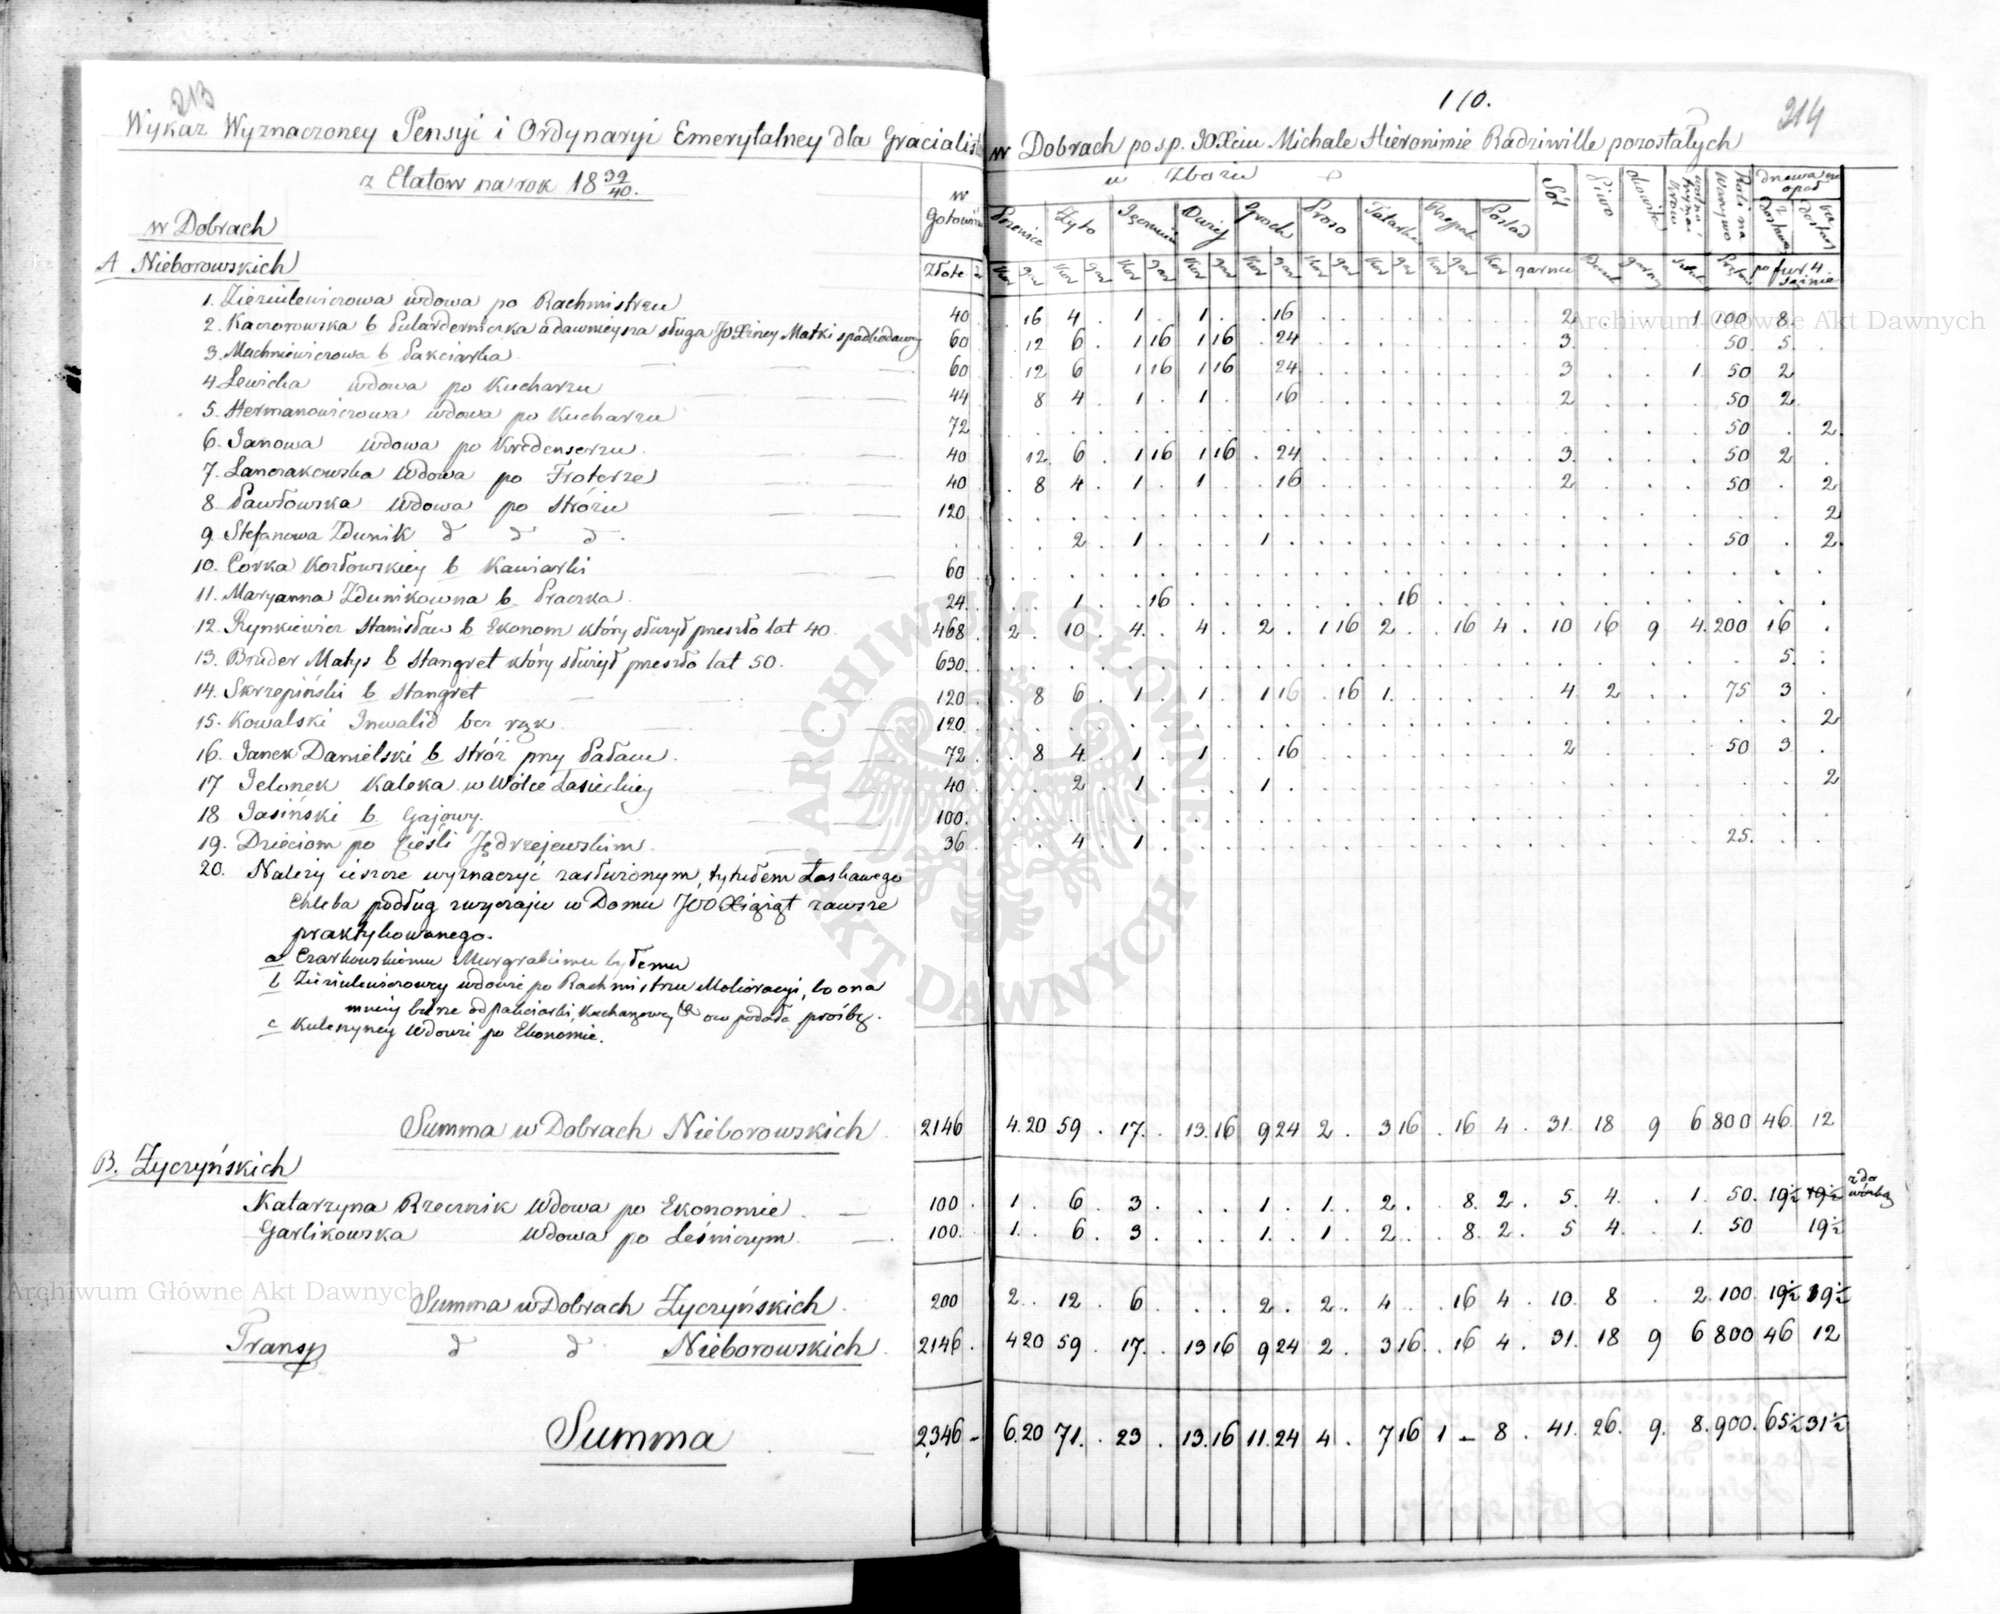 213
Wykaz Wyznaczoney Pensyi i Ordynaryi Emerytalney dla Gracialist w Dobrach po s.p. JO Xciu Michale Hieronimie Radziwille pozostałych
110.
214
z Etatow na rok 18 39/40.
w Gotowiźnie
w Zbożu
Sól
Piwo
Okowita
Roli na Warzywo
drzewa na opał
Pszenica Żyto Jęczmień Owies Groch Proso Tatarka Rzepak Poślad
w Dobrach
Złote
Kor gar Kor gar Kor gar Kor gar Kor gar Kor gar Kor gar Kor gar Kor garnce
A Nieborowskich
1. Zieziulewiczowa wdowa po Rachmistrzu 40 . 16 4 . 1 . 1 . . 16 2 1 100 8
2. Kaczorowska b Pularderniczka a dawnieysza sługa JO Xżney Matki spadkodawcy 60 12 6 . 1 16 1 16 . 24 3 50 5
3. Machniewiczowa b Pakciarka 60 12 6 . 1 16 1 16 24 3 . . 1 50 2
4. Lewicka wdowa po Kucharzu 44 8 4 . 1 . 1 . 16 2 50 2
5. Hermanowiczowa wdowa po Kucharzu 72 50 . 2
6. Janowa wdowa po Kredenserzu 40 12 6 . 1 16 1 16 . 24 3 50 2
7. Lanczakowska Wdowa po Froterze 40 . 8 4 . 1 . 1 . . 16 2 50 . 2
8. Pawłowska wdowa po Stróżu 120 2
9. Stefanowa Zdunik d d d . 2 . 1 1 50 . 2
10. Córka Kozłowskiey b Kawiarki 60
11. Maryanna Zdunikowna b Praczka 24 1 . 16 16
12. Rynkiewicz Stanisław b Ekonom który służył przeszło lat 40 468 2 . 10 . 4 . 4 . 2 . 1 16 2 . . 16 4 . 10 16 9 4 200 16
13. Bruder Matys b Stangret który służył przeszło lat 50. 630 5
14. Skrzepiński b Stangret 120 8 6 . 1 . 1 . 1 16 . 16 1 4 2 75 3
15. Kowalski Inwalid bez rąk 120 2
16. Janek Danielski b Stróż przy Pałacu 72 8 4 . 1 . 1 . 16 2 50 3
17 Jelonek Kaleka w Wólce Łasieckiey 40 2 . 1 1 2
18 Jasiński b Gajowy. 100.
19. Dzieciom po Cieśli Jędrzejewskim. 36 4 . 1 25
20. Należy ieszcze wyznaczyć zasłużonym, tytułem Łaskawego
Chleba podług zwyczaju w Domu JOO Xiążąt zawsze
praktykowanego.
a Czarkowskiemu Murgrabiemu byłemu
b Zieziulewiczowey wdowie po Rachmistrzu Melioracyi, bo ona
mniey bierze od pakciarki, Kucharzowey & oco podała prośbę.
c Kuleszyney Wdowie po Ekonomie.
Summa w Dobrach Nieborowskich 2146 4.20 59 . 17 . 13.16 9 24 2 . 3 16 . 16 4 . 31. 18 9 6 800 46 12
B. Życzyńskich
Katarzyna Rzecznik Wdowa po Ekonomie 100 1 . 6 3 . . . 1 . 1 . 2 . . 8. 2 . 5. 4. . 1. 50. 19½ 19½
Garlikowska Wdowa po Leśniczym 100. 1 . 6 . 3 . . . 1 . 1 . 2 . . 8. 2 . 5 4. . 1. 50 19½
Summa w Dobrach Życzyńskich 200 2 . 12 . 6 . . . 2 . 2 . 4 . . 16 4 . 10. 8 . 2. 100. 19½ 19½
Transp d d Nieborowskich 2146 . 4 20 59 . 17. . 13 16 9 24 2 . 3 16 . 16 4 . 31. 18 9 6 800 46 12
Summa 2346 - 6.20 71. . 23 . 13.16 11.24 4 . 7 16 1 - 8 . 41. 26. 9. 8. 900. 65½ 31½
Archiwum Główne Akt Dawnych
Archiwum Główne Akt Dawnych
ARCHIWUM GŁÓWNE AKT DAWNYCH